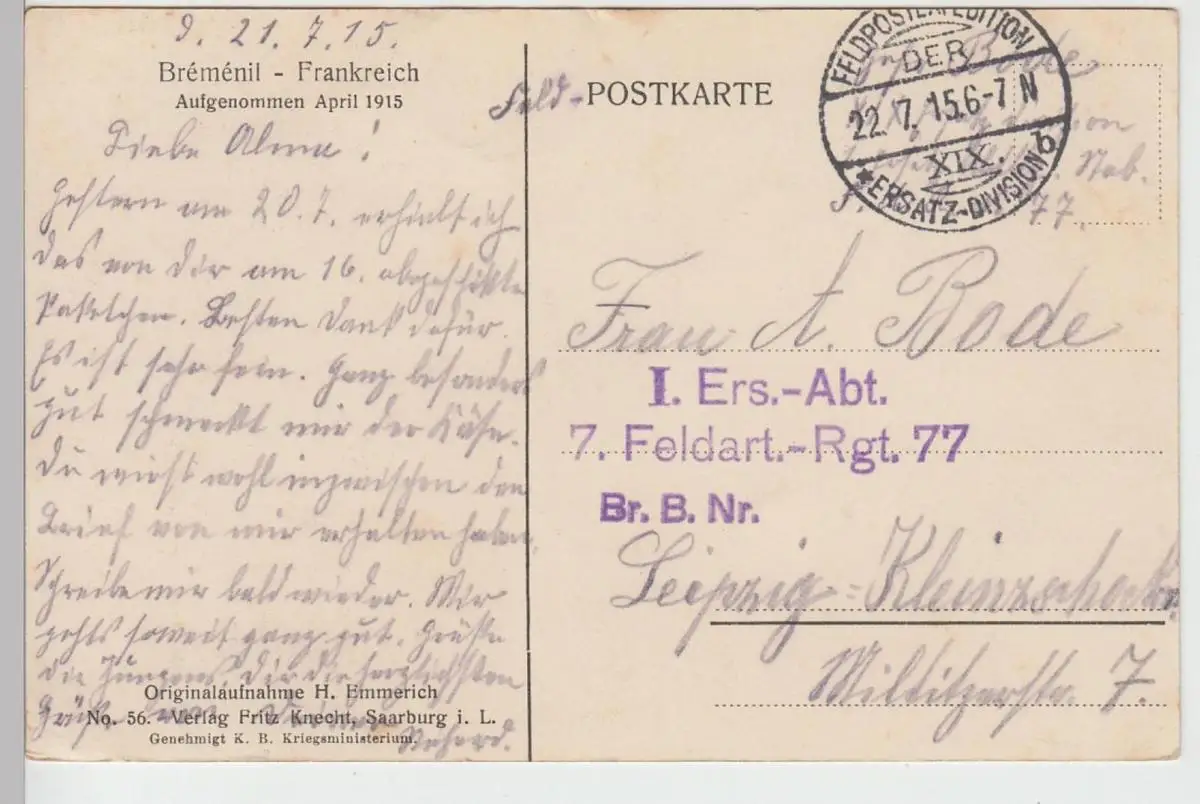 d. 21.7.15.
Bréménil - Frankreich
Aufgenommen April 1915
Liebe Alma!
Gestern am 20.7. erhielt ich
das von Dir am 16. abgeschickte
Paketchen. Besten Dank dafür.
Es ist sehr fein. Ganz besonders
gut schmeckt mir der Käse.
Du wirst wohl inzwischen den
Brief von mir erhalten haben.
Schreibe mir bald wieder. Mir
gehts soweit ganz gut. Grüße
die Jungens. Dir die herzlichsten
Grüße von Deinem
Originalaufnahme H. Emmerich
No. 56. Verlag Fritz Knecht, Saarburg i. L.
Genehmigt K. B. Kriegsministerium.
Feld-POSTKARTE
FELDPOSTEXPEDITION
DER
22. 7. 15. 6-7 N
XIX.
* ERSATZ-DIVISION b
Bode
77.
Frau A. Bode
I. Ers.-Abt.
7. Feldart.-Rgt. 77
Br. B. Nr.
Leipzig-Kleinzschocher
Miltitzerstr. 7.